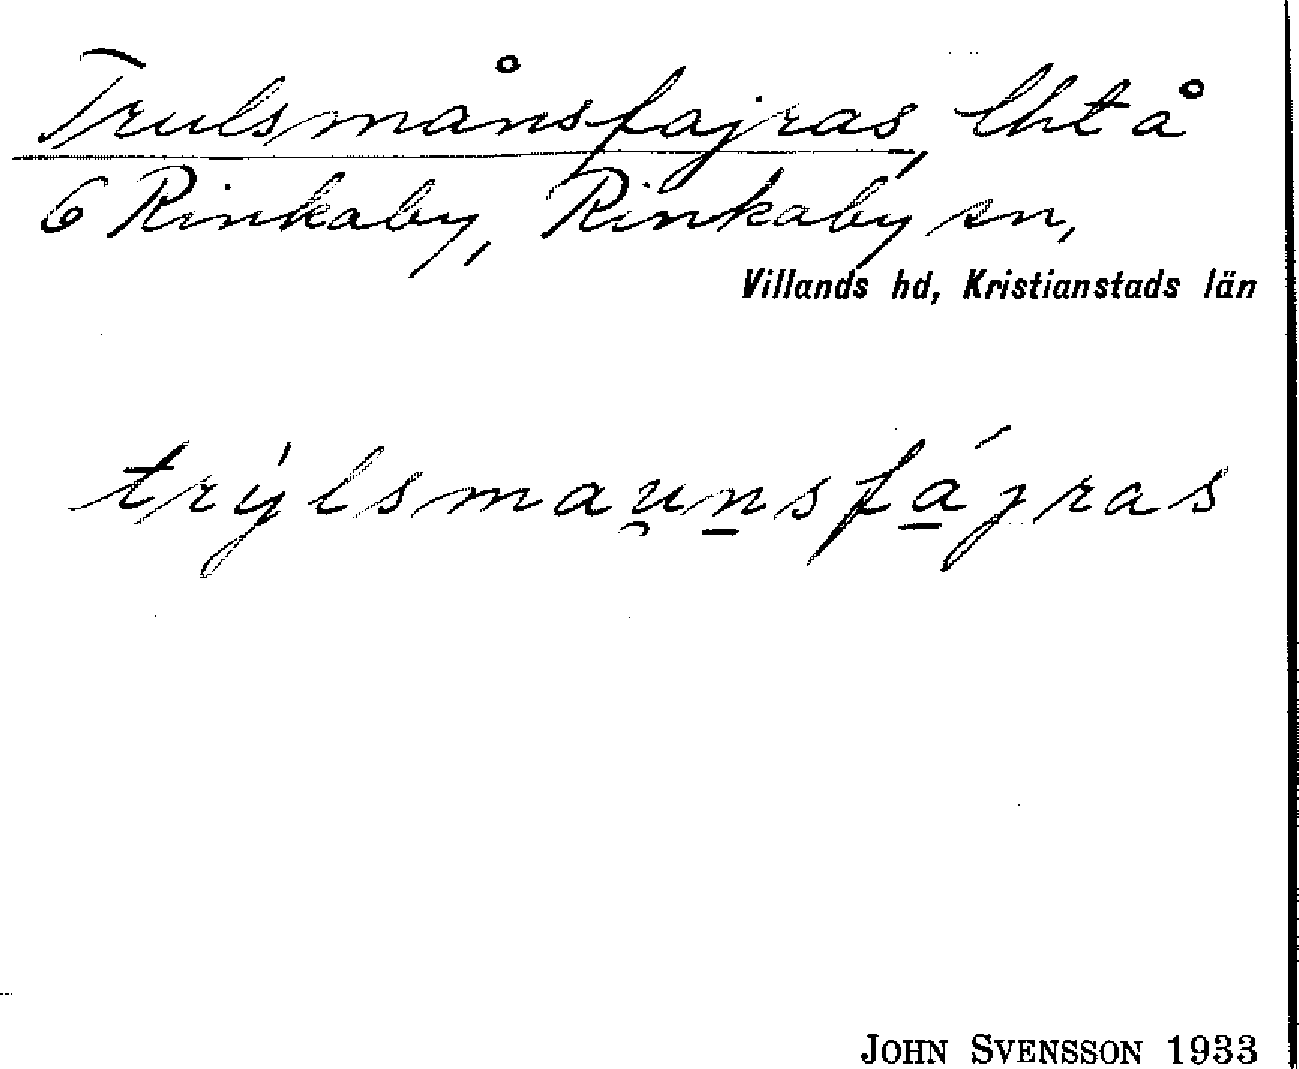 Trulsmånsfajras, lht å
6 Rinkaby, Rinkaby sn,
Villands hd, Kristianstads län
trýlsmau̯n̲sfá̲jras
JOHN SVENSSON 1933